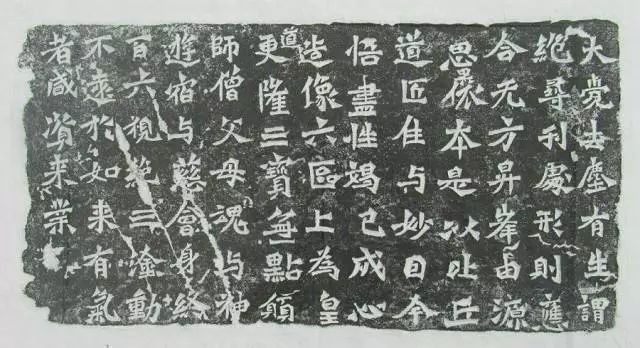 大覺去塵有生謂
絶尋刋處形則應
合无方昇峯由源
思攘本是以比丘
道匠住与妙因今
悟盡性竭己成心
造像六區上為皇
道更隆三寶無點願
師僧父母魂与神
遊宿与慈會身終
百六視絶三塗動
不遠於如来有氣
者咸資来業